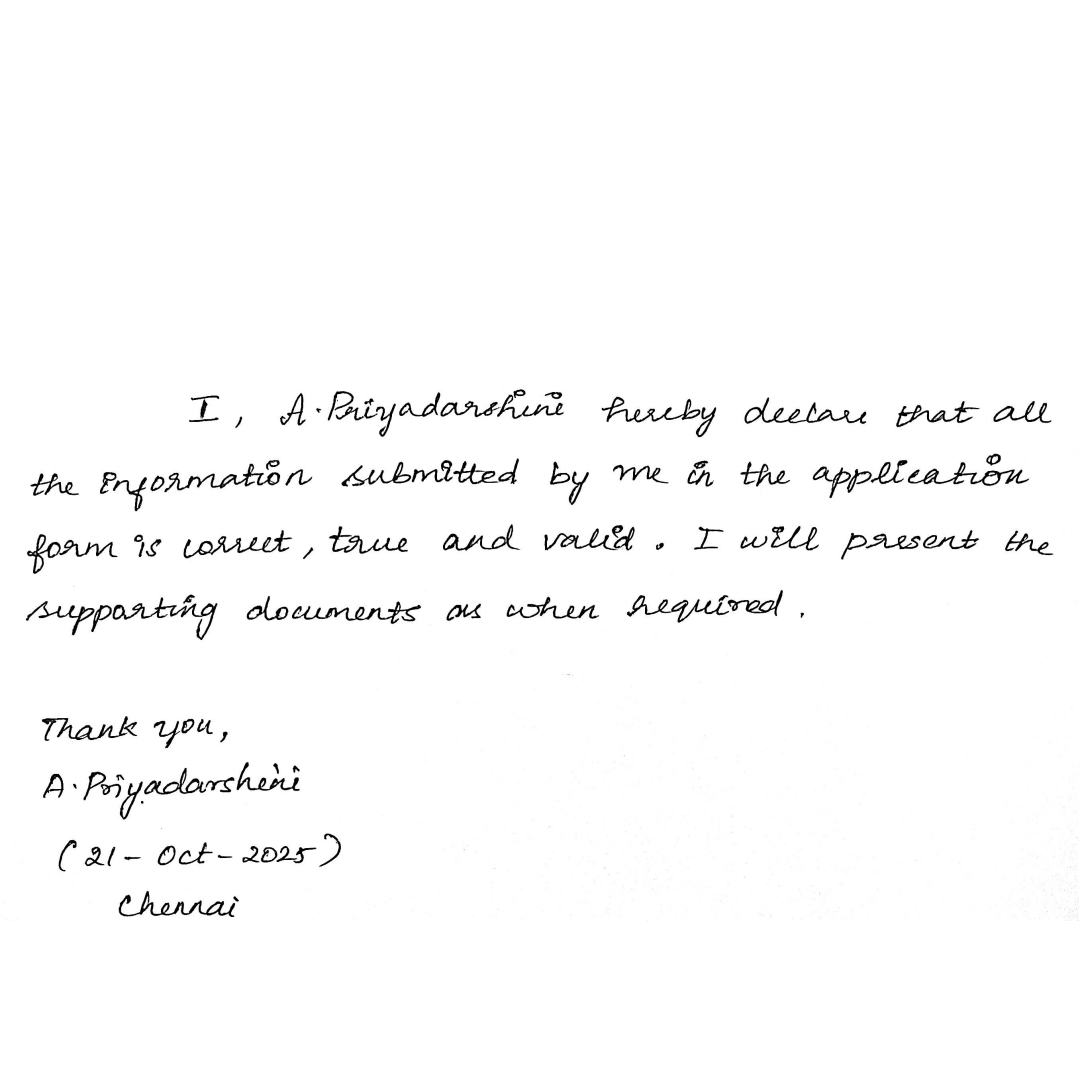 I, A. Priyadarshini hereby declare that all
the information submitted by me in the application
form is correct, true and valid. I will present the
supporting documents as when required.
Thank you,
A. Priyadarshini
(21 - Oct - 2025)
Chennai